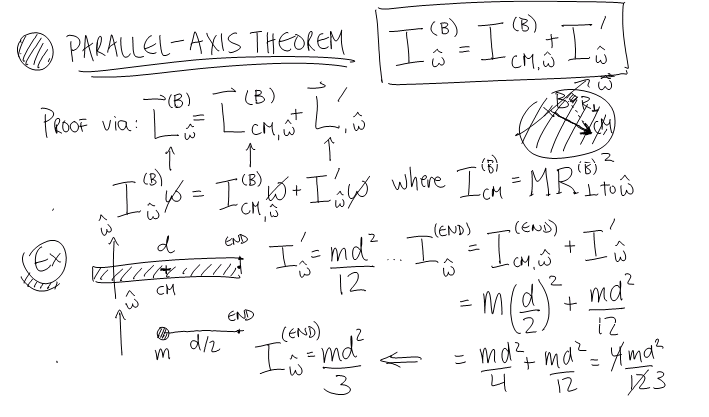 PARALLEL-AXIS THEOREM
I_ω̂^(B) = I_CM,ω̂^(B) + I_ω̂'
PROOF via: L⃗_ω̂^(B) = L⃗_CM,ω̂^(B) + L⃗'_,ω̂
ω⃗
B R⊥
CM
I_ω̂^(B) ω = I_CM,ω̂^(B) ω + I_ω̂' ω where I_CM^(B) = MR_⊥ to ω̂^(B)2
Ex
ω̂ d END
CM
I_ω̂' = md²/12 ... I_ω̂^(END) = I_CM,ω̂^(END) + I_ω̂'
= M(d/2)² + md²/12
ω̂ END
m d/2
I_ω̂^(END) = md²/3 ⇐ = md²/4 + md²/12 = 4md²/12 3